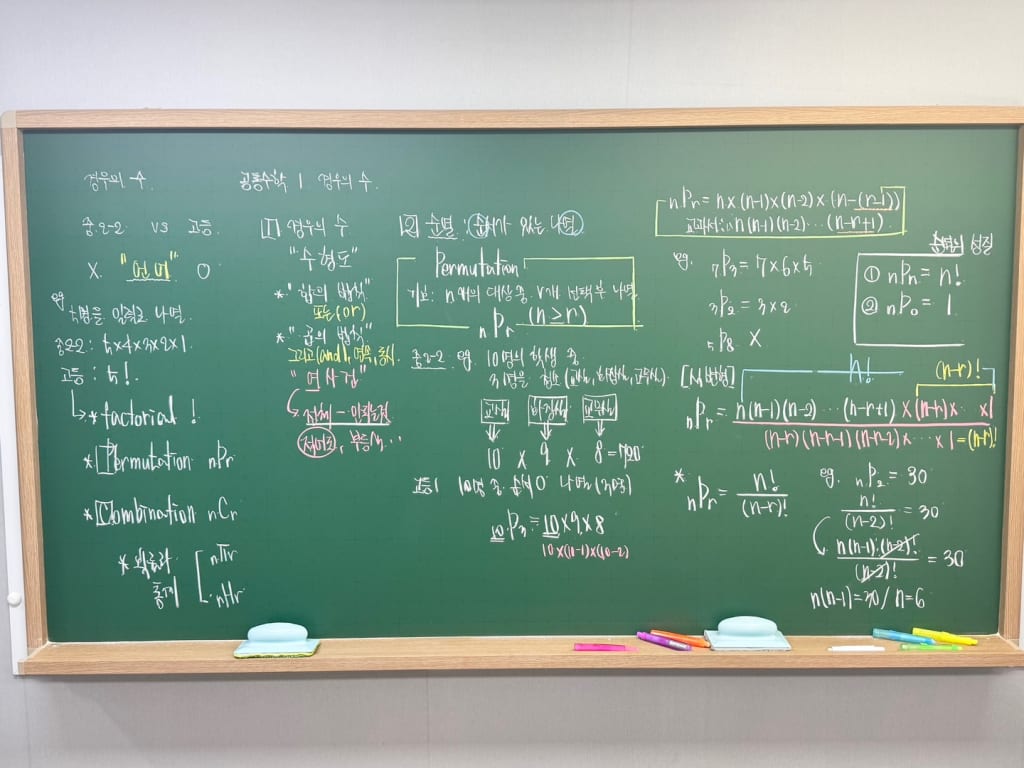 경우의 수
중2-2 vs 고등
X "연대" O
eg. 5명을 일렬로 나열
중2-2 : 5×4×3×2×1
고등 : 5!
* factorial !
* Permutation nPr
* Combination nCr
* 확률과 통계
nΠr
nHr
공통수학 1 경우의 수
1 경우의 수
"수형도"
* "합의 법칙"
또는(or)
* "곱의 법칙"
그리고(and),
"여사건"
전체 -
부등식
2 순열 : 순서가 있는 나열
Permutation
기호 : n개의 대상 중, r개 선택 후 나열
nPr (n≥r)
중2-2 eg. 10명의 학생 중
3명을 점호
10 × 9 × 8 = 720
고등1 10명 중 순서 O 나열
10P3 = 10×9×8
10×(10-1)×(10-2)
nPr = n×(n-1)×(n-2)×(n-(r-1))
교과서 : n(n-1)(n-2)…(n-r+1)
eg. 7P3 = 7×6×5
3P2 = 3×2
5P8 X
순열의 성질
① nPn = n!
② nP0 = 1
n! (n-r)!
nPr = n(n-1)(n-2)…(n-r+1)×(n-r)×…×1
(n-r)(n-r-1)(n-r-2)×…×1=(n-r)!
* nPr = n!/(n-r)!
eg. nP2 = 30
n!/(n-2)! = 30
n(n-1)(n-2)!/(n-2)! = 30
n(n-1)=30 / n=6